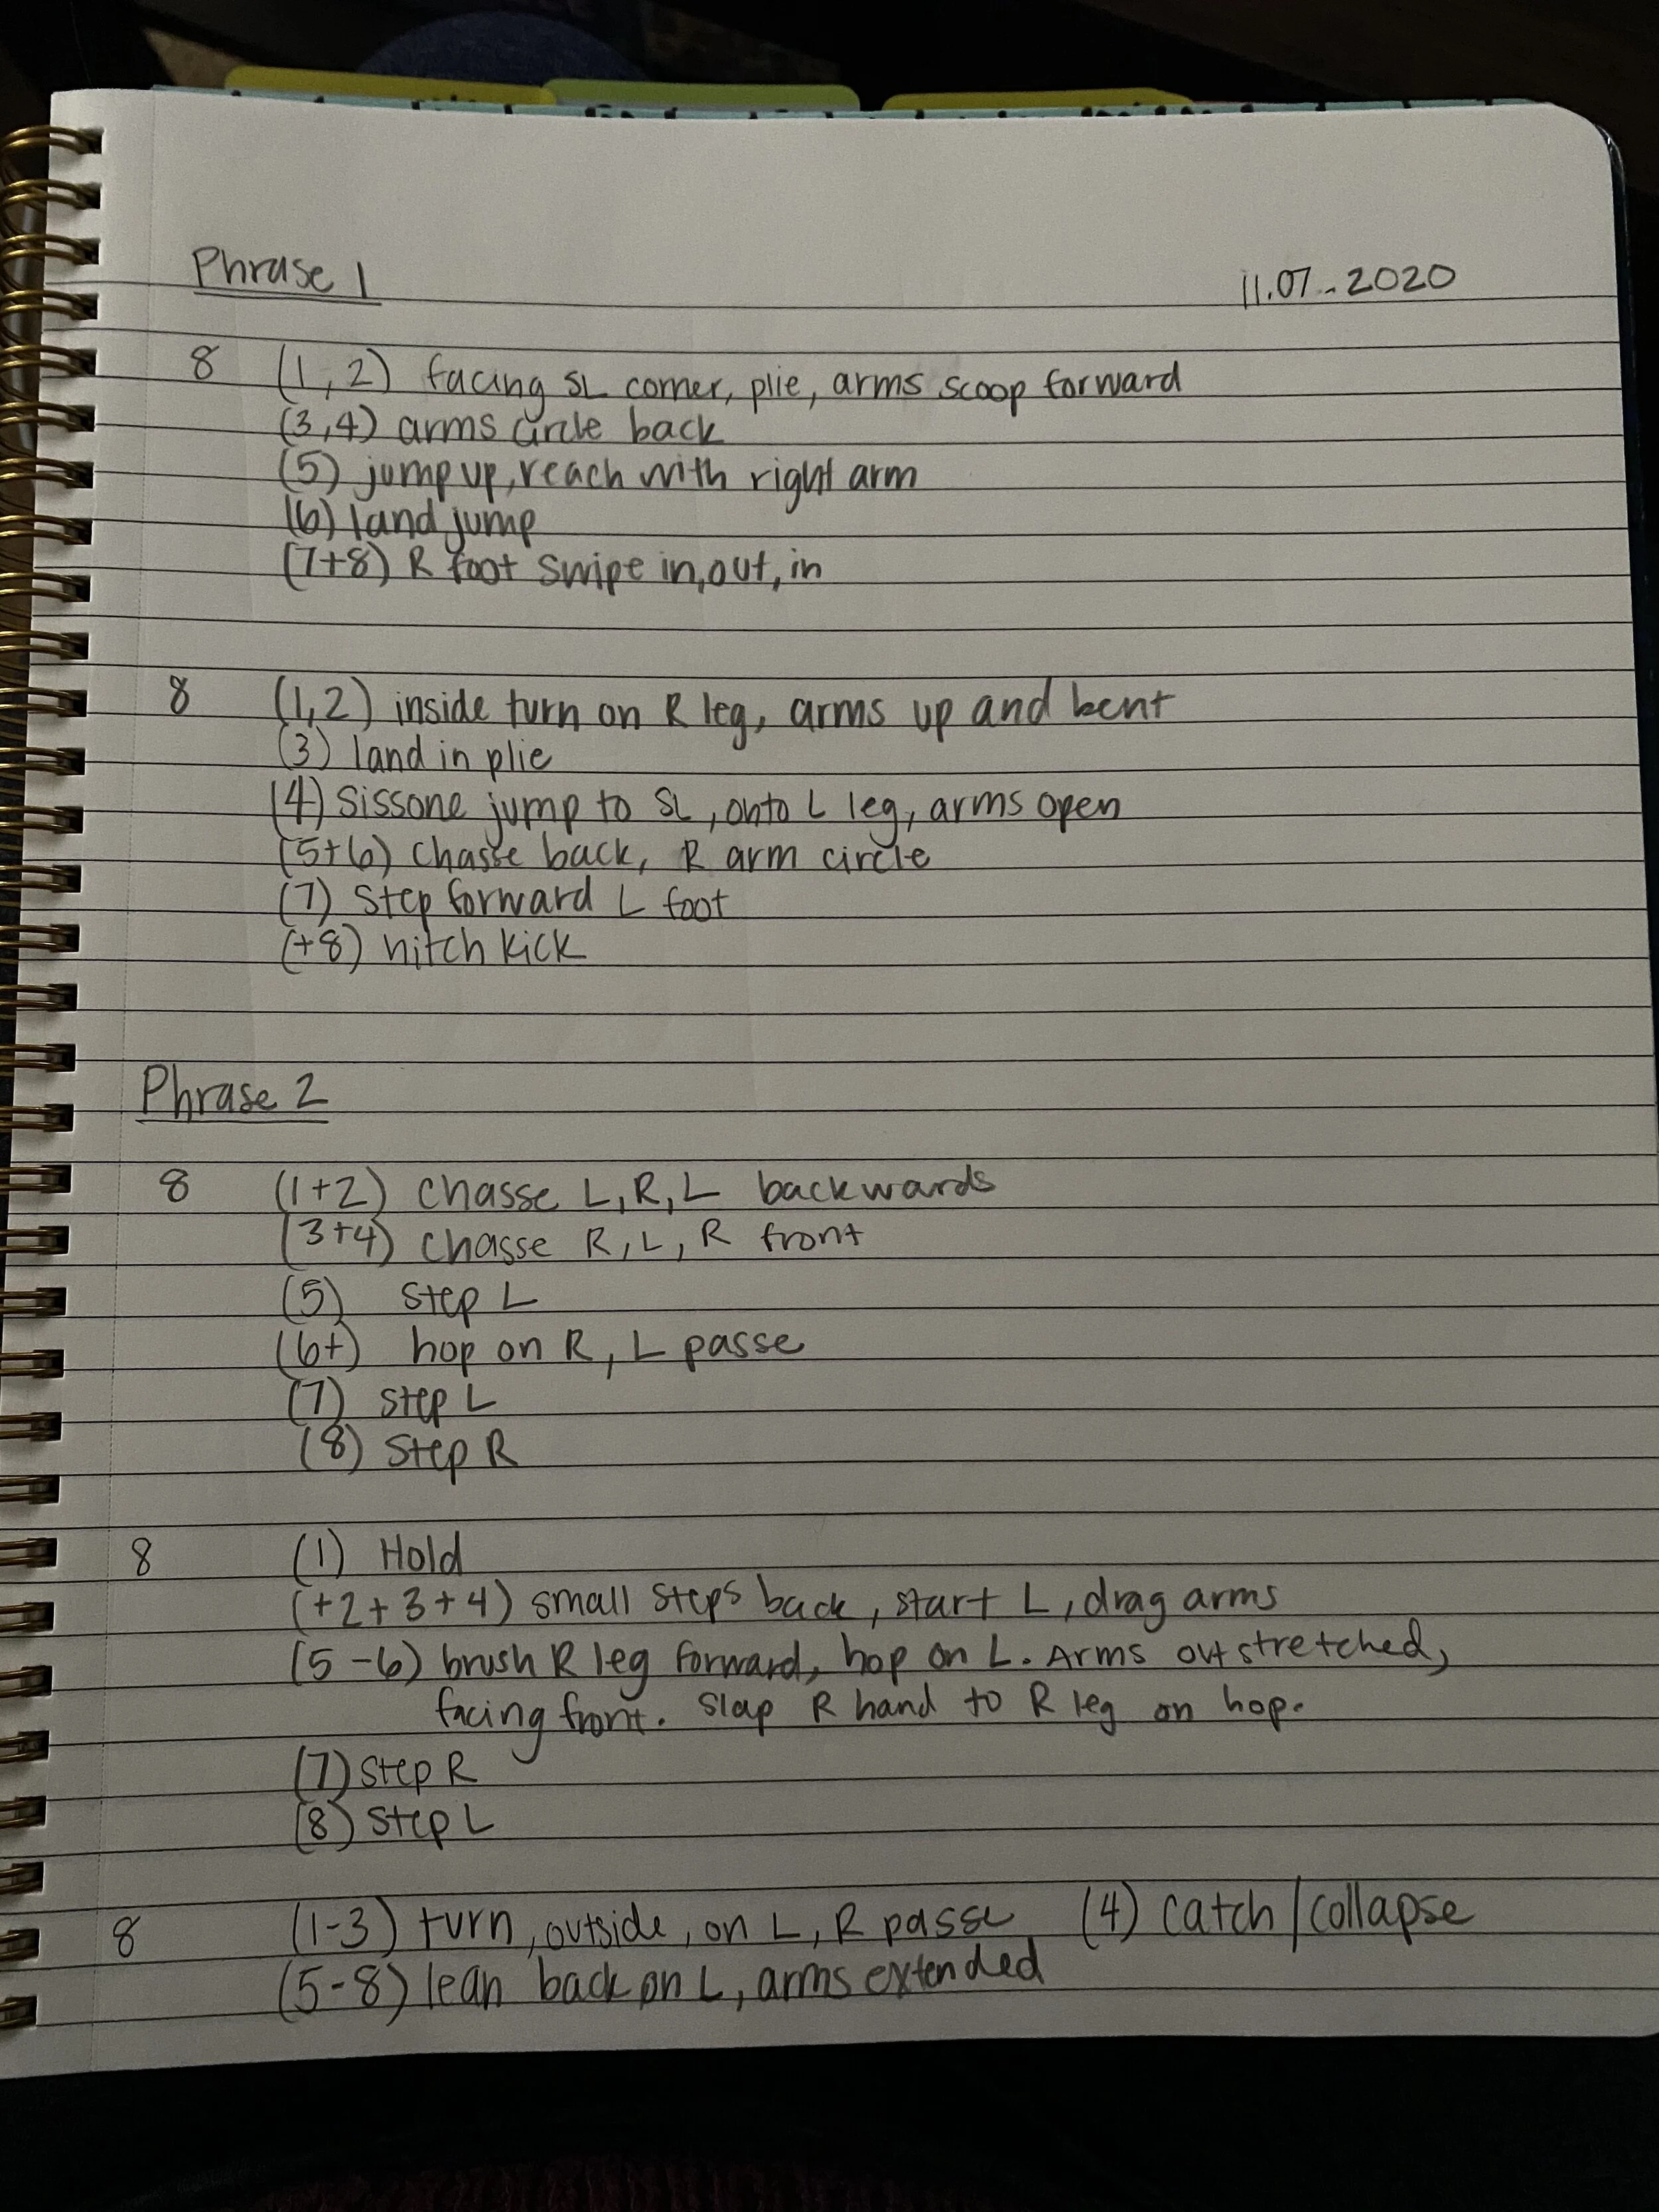 Phrase 1 11.07.2020
8 (1,2) facing SL corner, plie, arms scoop forward
(3,4) arms circle back
(5) jump up, reach with right arm
(6) land jump
(7+8) R foot swipe in, out, in
8 (1,2) inside turn on R leg, arms up and bent
(3) land in plie
(4) Sissone jump to SL, onto L leg, arms open
(5+6) chasse back, R arm circle
(7) Step forward L foot
(+8) hitch kick
Phrase 2
8 (1+2) chasse L, R, L backwards
(3+4) chasse R, L, R front
(5) step L
(6+) hop on R, L passe
(7) step L
(8) Step R
8 (1) Hold
(+2+3+4) small steps back, start L, drag arms
(5-6) brush R leg forward, hop on L. Arms outstretched,
facing front. Slap R hand to R leg on hop.
(7) Step R
(8) Step L
8 (1-3) turn, outside, on L, R passe (4) catch/collapse
(5-8) lean back on L, arms extended